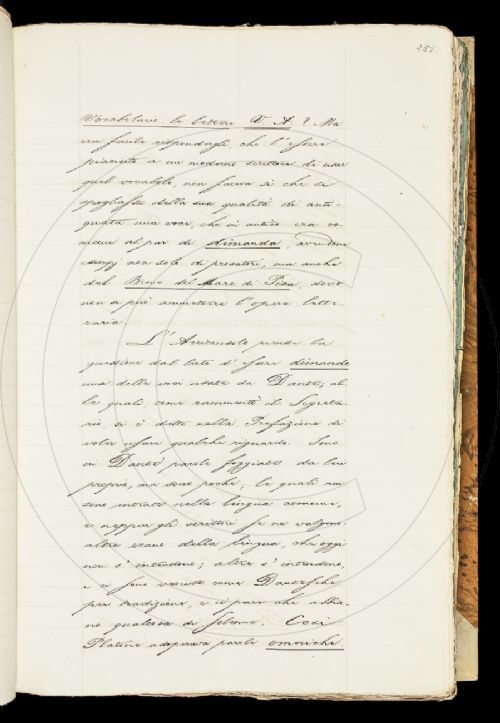 251.
Vocabolario le lettere V. A.? Ma
era facile rispondergli, che l'essere
piaciuto a un moderno scrittore di usar
quel vocabolo, non faceva sì che si
spogliasse della sua qualità di anti-
quata una voce, che in antico era co-
mune al par di dimanda, avendone
esempj non solo di prosatori, ma anche
del Breve del Mare di Pisa, dove
non si può ammettere l'opera lette-
raria.
L'Arciconsolo prende la
questione dal lato d'essere dimando
una delle voci usate da Dante, al-
le quali, come rammentò il Segreta-
rio, si è detto nella Prefazione di
voler usare qualche riguardo. Sono
in Dante parole foggiate da lui
proprio, ma sono poche; le quali non
sono entrate nella lingua comune,
e neppur gli scrittori se ne valgono.
altre erano della lingua, che oggi
non s'intendono; altre s'intendono,
e ci sono venute come Dantesche
per tradizione, e ci pare che abbia-
no qualcosa di solenne. Così
Platone adoperava parole omeriche.